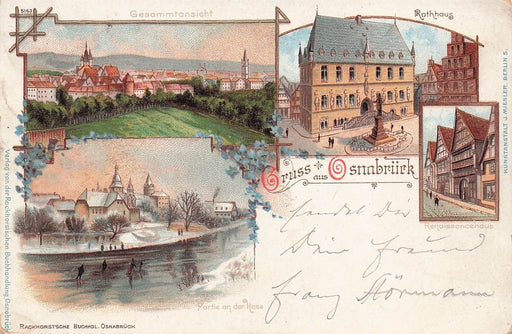 5163
Gesammtansicht
Rathhaus
Gruss aus Osnabrück
Renaissancehaus
sendet Dir
Dein Freund
Franz Störmann
Partie an der Hase
RACKHORSTSCHE BUCHHDL. OSNABRÜCK.
Verlag von der Rackhorstschen Buchhandlung Osnabrück
KUNSTANSTALT J. MIESLER, BERLIN S.